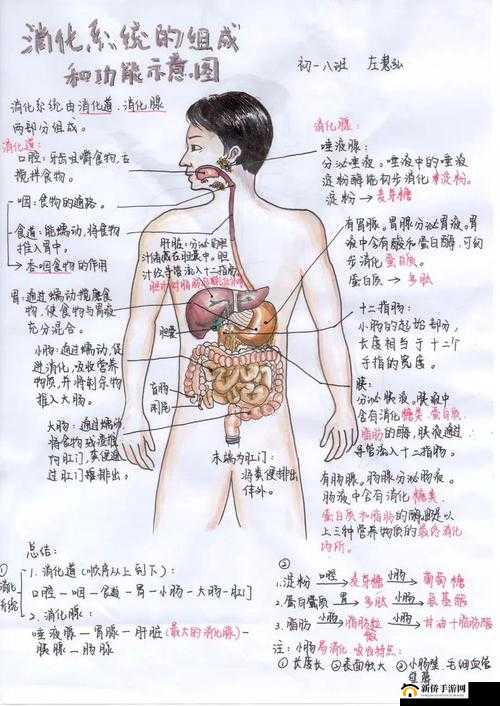 消化系统的组成
和功能示意图
初一八班
消化系统由消化道、消化腺
两部分组成。
消化道:
口腔:牙齿咀嚼食物,舌
搅拌食物。
咽:食物的通路。
食道:能蠕动,将食物
推入胃中。
吞咽食物的作用
胃:通过蠕动搅磨食
物,使食物与胃液
充分混合。
小肠:通过蠕动,促
进消化,吸收营养
物质,并将剩余物
推入大肠。
大肠:通过蠕动
将食物残渣推
向肛门,
肝脏:分泌的胆
汁储藏在胆囊中。胆
汁经导管流入十二指肠,
胆囊
盲肠
阑尾
末端为肛门:
将粪便排出
体外。
消化腺:
唾液腺:
分泌唾液。唾液中的唾液
淀粉酶能初步消化淀粉。
淀粉→麦芽糖
有胃腺。胃腺分泌胃液。胃
液中含有酸和蛋白酶,可初
步消化蛋白质。
蛋白质→多肽
十二指肠:
小肠的起始部分,
长度相当于十二个
手指的宽度。
胰:
分泌胰液。胰液中
含有消化糖类、蛋白质、
脂肪的酶,胰液通过
导管流入十二指肠。
有肠腺。肠腺分泌肠液。
肠液中含有消化糖类、
蛋白质和脂肪的酶,是以
上三种营养物质的最终消化
场所。
总结:
① 消化系统
1. 消化道(顺序从上到下):
口腔—咽—食道—胃—小肠—大肠—肛门
2. 消化腺:
唾液腺—胃腺—肝脏(最大的消化腺)—
胰腺—肠腺
②
1. 淀粉 口腔→ 麦芽糖 小肠→ 葡萄糖
2. 蛋白质 胃→ 多肽 小肠→ 氨基酸
3. 脂肪 小肠→ 脂肪微粒 小肠→ 甘油+脂肪酸
注:小肠易消化 吸收特点:
①长度长 ②表面较大 ③小肠壁、毛细血管
壁薄
新侨手游网